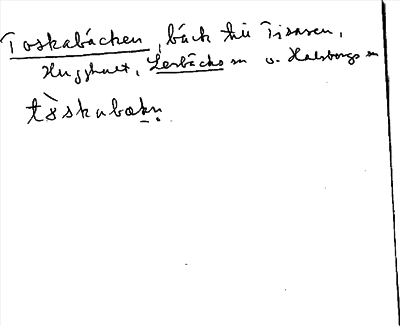 Toskabäcken, bäck till Tisaren,
Lerbäcks sn o. Halsbergs sn
tòskabækn.